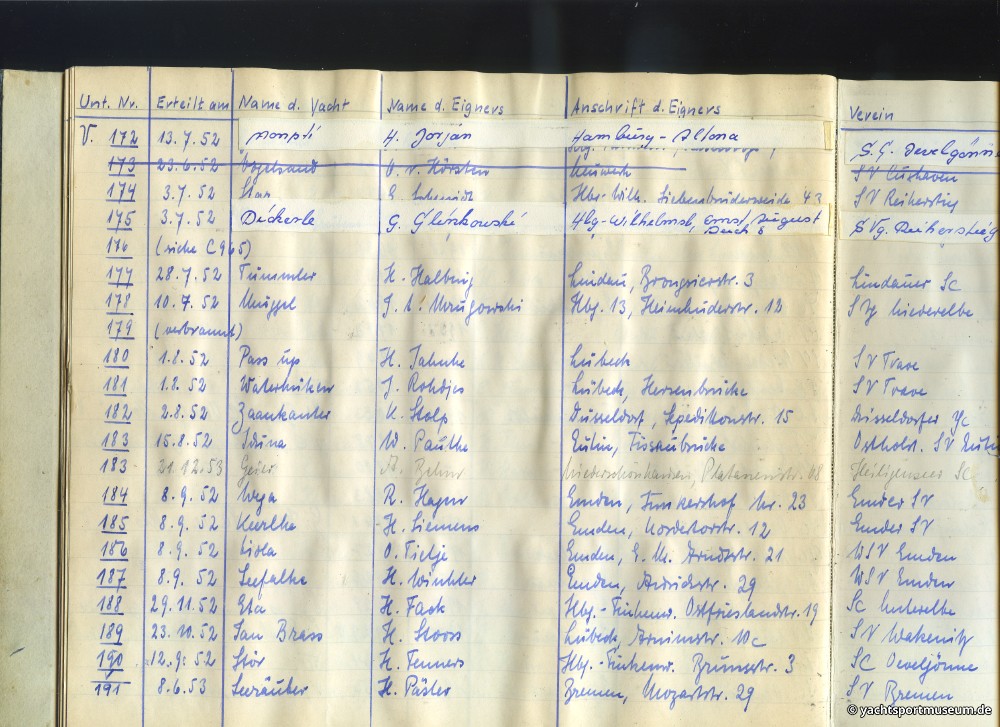 Unt. Nr. Erteilt am Name d. Yacht Name d. Eigners Anschrift d. Eigners Verein
V. 172 13.7.52 H. Jorjan Hamburg-Altona S.G.
173 23.6.52 Vogelsand O. v. Hörsten Neuwerk SV Cuxhaven
174 3.7.52 Star Hbg-Wilh. 43 SV Reiherstieg
175 3.7.52 G. Hbg-Wilhelmsb., Ernst, August Deich 6 SVg. Reiherstieg
176 (siehe C965)
177 28.7.52 Tümmler H. Halbig Lindau, 3 Lindauer SC
178 10.7.52 Muggel J. A. Mrugowski Hbg. 13, Heimhuderstr. 12 Niederelbe
179 (verbrannt)
180 1.8.52 Pass up H. Jahnke Lübeck SV Trave
181 1.8.52 Waterküken J. Rohdjes Lübeck, Herrenbrücke SV Trave
182 2.8.52 Zaankanter K. Stolp Düsseldorf, 15 Düsseldorfer Yc
183 15.8.52 Iduna W. Paulke Eutin, Fissaubrücke Ostholst. SV Eutin
183 21.12.53 Geier Niederschönhausen, Platanenstr. Heiligensee SC
184 8.9.52 Wega R. Hagen Emden, Nr. 23 Emder SV
185 8.9.52 H. Siemens Emden, Nordertorstr. 12 Emder SV
186 8.9.52 Viola O. Tietje Emden, E. M. Arndtstr. 21 WSV Emden
187 8.9.52 Seefalke H. Winkler Emden, 29 WSV Emden
188 29.11.52 Eta H. Fack Hbg.-Finkenw. Ostfrieslandstr. 19 Sc Unterelbe
189 23.10.52 Jan Brass H. Lübeck, Arnimstr. 10c SV Wakenitz
190 12.9.52 Stör H. Fenners Hbg.-Finkenw. Brunostr. 3 SC Oeveljönne
191 8.6.53 Seeräuber H. Bremen, Mozartstr. 29 SV Bremen
© yachtsportmuseum.de